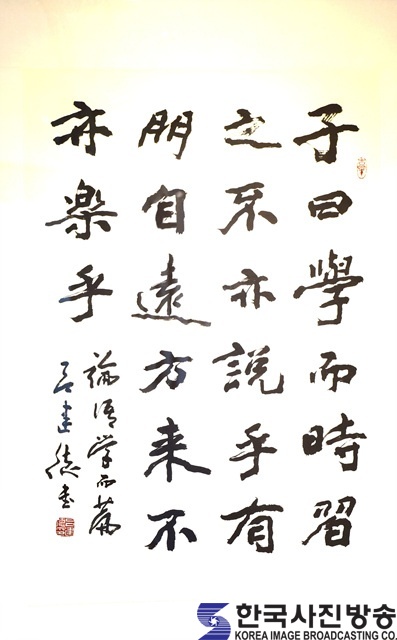 子曰學而時習
之不亦説乎有
朋自遠方来不
亦楽乎
論語学而篇
한국사진방송
KOREA IMAGE BROADCASTING CO.